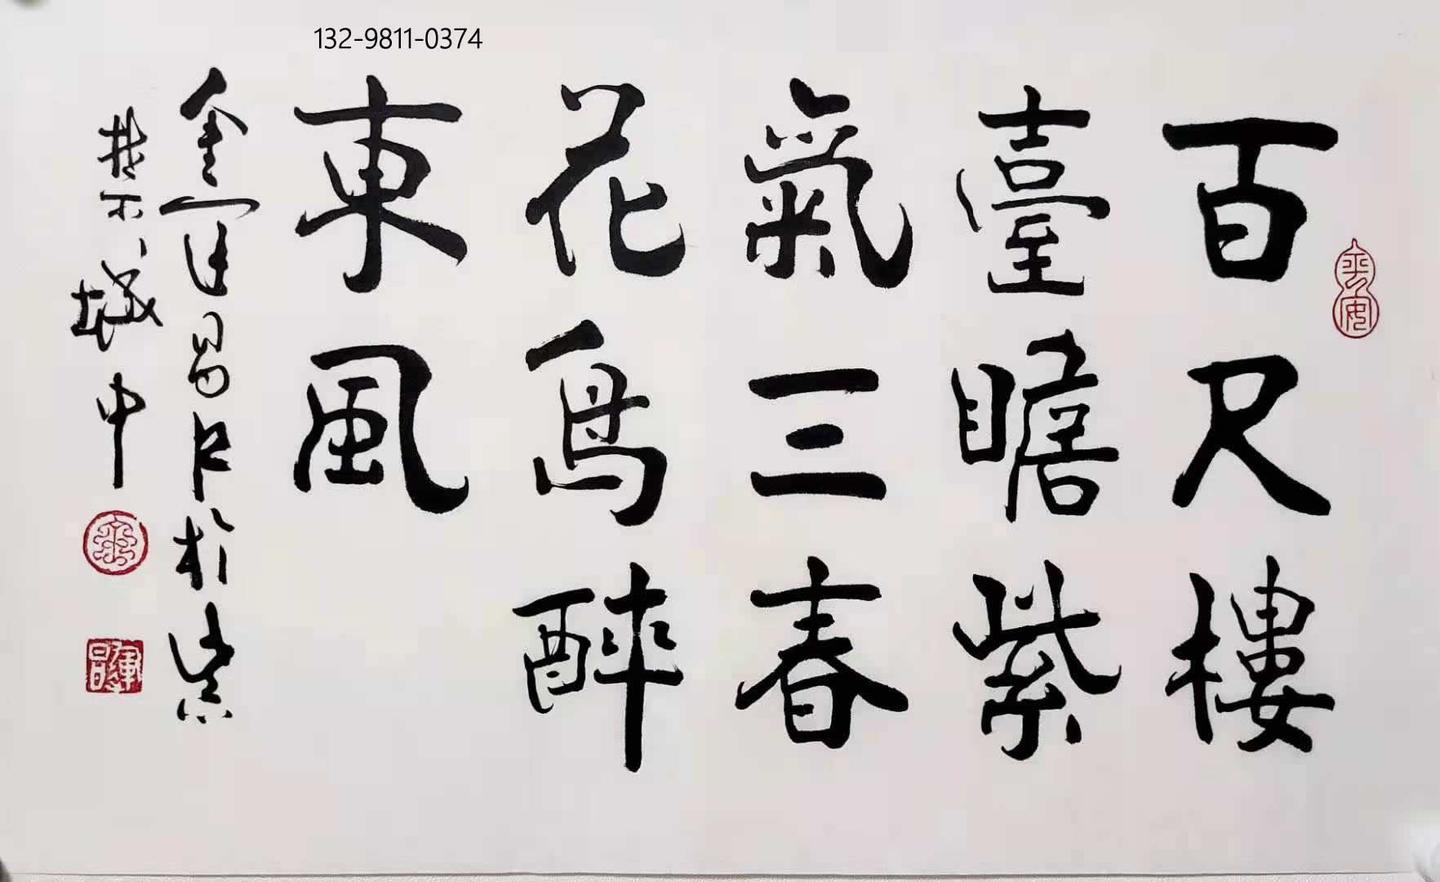 132-9811-0374
百尺樓
臺瞻紫
氣三春
花鳥醉
東風
於
城中